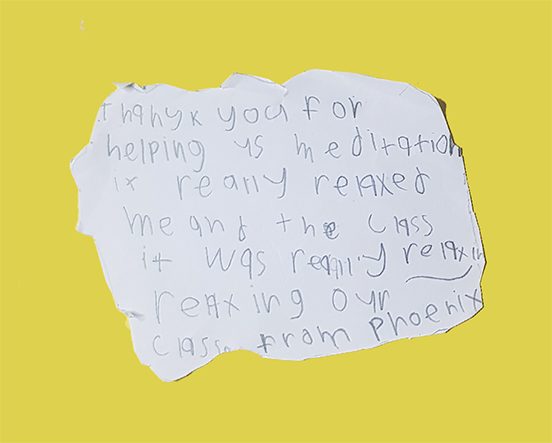 thank you for
helping us meditation
it really relaxed
me and the class
it was really relaxin
relaxing our
class from Phoenix